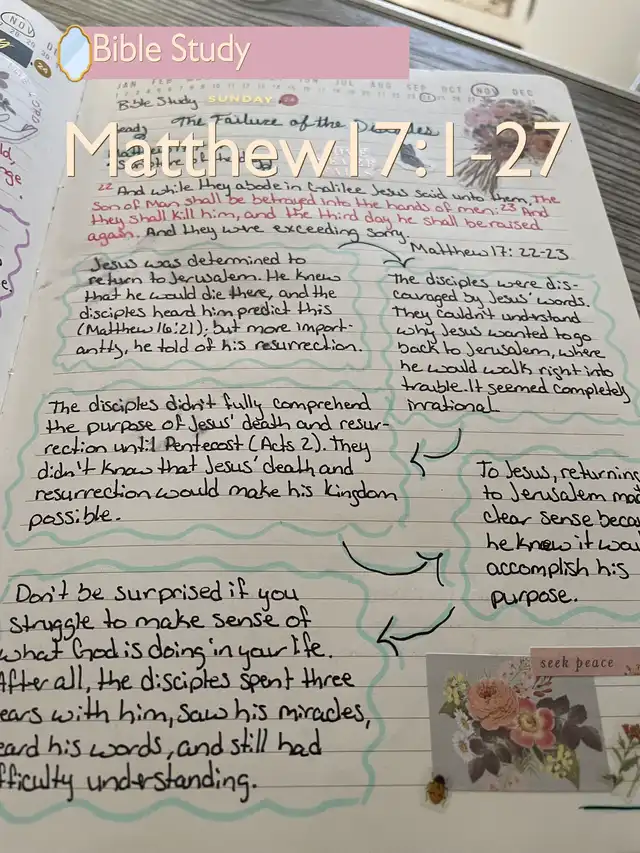 Bible Study
JAN FEB JUL AUG SEP OCT NOV DEC
Bible Study SUNDAY
Ready The Failure of the Disciples
Matthew 17:1-27
22 And while they abode in Galilee Jesus said unto them, The
Son of Man shall be betrayed into the hands of men: 23 And
they shall kill him, and the third day he shall be raised
again. And they were exceeding sorry.
Matthew 17: 22-23
Jesus was determined to
return to Jerusalem. He knew
that he would die there, and the
disciples heard him predict this
(Matthew 16:21); but more import-
antly, he told of his resurrection.
The disciples were dis-
couraged by Jesus' words.
They couldn't understand
why Jesus wanted to go
back to Jerusalem, where
he would walk right into
trouble. It seemed completely
irrational
The disciples didn't fully comprehend
the purpose of Jesus' death and resur-
rection until Pentecost (Acts 2). They
didn't know that Jesus' death and
resurrection would make his Kingdom
possible.
To Jesus, returning
to Jerusalem ma
clear sense beca
he knew it wou
accomplish his
purpose.
Don't be surprised if you
struggle to make sense of
what God is doing in your life.
After all, the disciples spent three
ears with him, saw his miracles,
eard his words, and still had
fficulty understanding.
seek peace